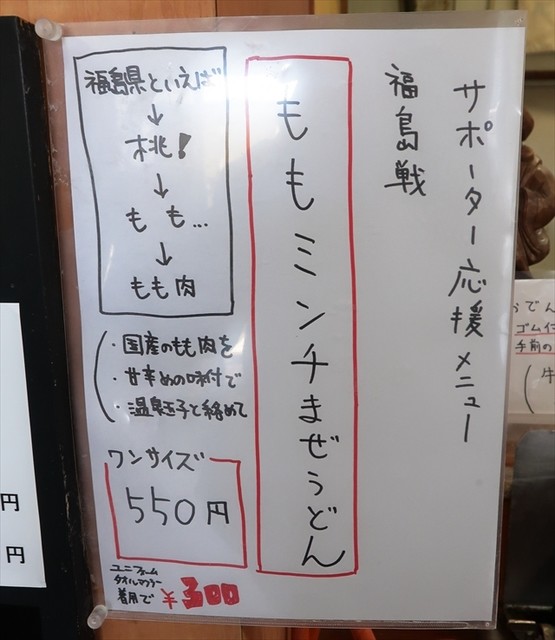 サポーター応援メニュー
福島戦
ももミンチまぜうどん
福島県といえば
↓
桃!
↓
もも...
↓
もも肉
・国産のもも肉を
・甘辛めの味付で
・温泉玉子と絡めて
ワンサイズ
550円
ユニフォーム
タオルマフラー
着用で ¥300
うどん
手前の
(牛
円
円